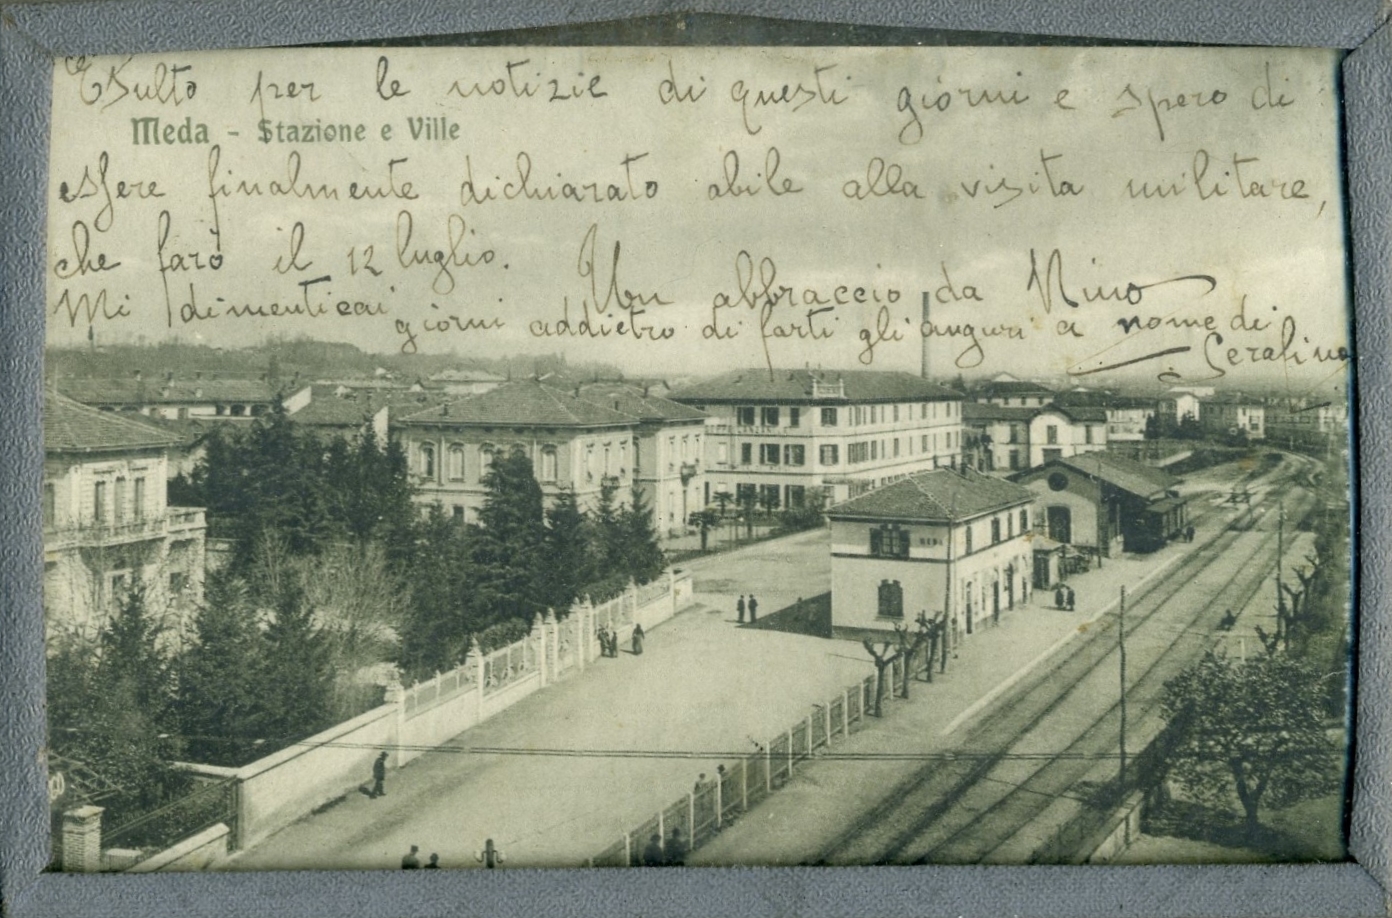 Esulto per le notizie di questi giorni e spero di
Meda - Stazione e Ville
essere finalmente dichiarato abile alla visita militare,
che farò il 12 luglio. Un abbraccio da Nino
Mi dimenticai giorni addietro di farti gli auguri a nome di
Serafino
MEDA